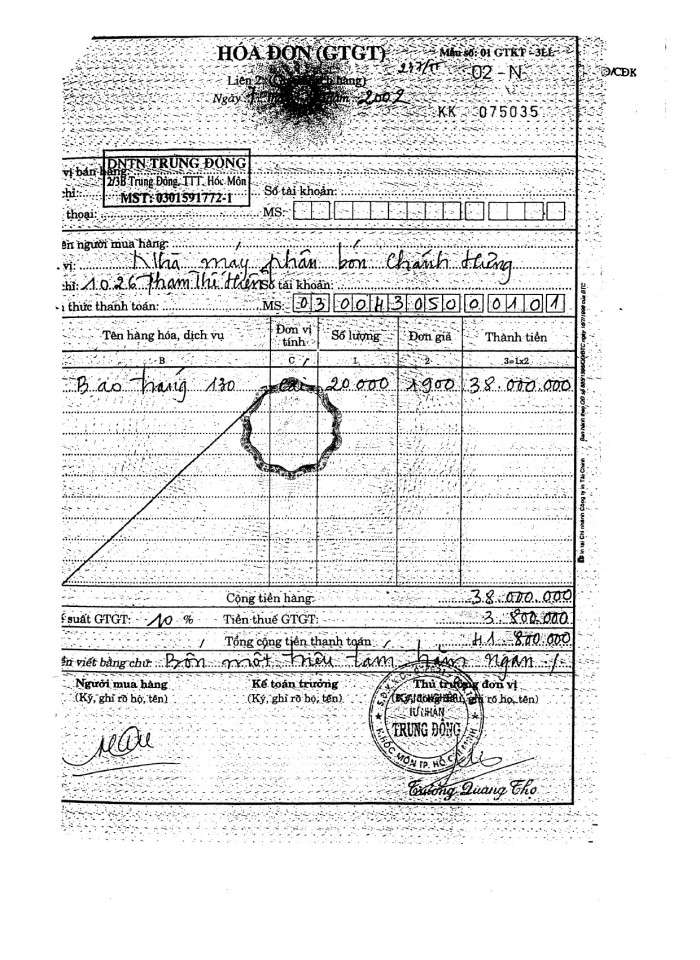 HÓA ĐƠN (GTGT)
Mẫu số: 01 GTKT - 3LL
Liên 2: hàng)
02 - N
Đ/CĐK
Ngày 7 2002
KK 075035
DNTN TRUNG ĐÔNG
vị bán hàng:
2/3B Trung Đông, TTT. Hóc Môn
chỉ: Số tài khoản:
MST: 0301591772-1
thoại: MS:
ên người mua hàng:
vị: Nhà máy phân bón Chánh Hưng
chỉ: 1026 Phạm Thế Hiển Số tài khoản:
thức thanh toán: MS: 03 00430500 0101
Tên hàng hóa, dịch vụ Đơn vị tính Số lượng Đơn giá Thành tiền
B C 1 2 3=1x2
Bao trắng 130 cái 20 000 1900 38.000.000
Cộng tiền hàng: 38.000.000
suất GTGT: 10 % Tiền thuế GTGT: 3 800.000
Tổng cộng tiền thanh toán 41 800.000
viết bằng chữ: Bốn một triệu tám trăm ngàn
Người mua hàng Kế toán trưởng Thủ trưởng đơn vị
(Ký, ghi rõ họ, tên) (Ký, ghi rõ họ, tên) ghi rõ họ, tên)
TƯ NHÂN
TRUNG ĐÔNG
H.HÓC MÔN TP. HỒ CHÍ MINH
Trương Quang Thọ